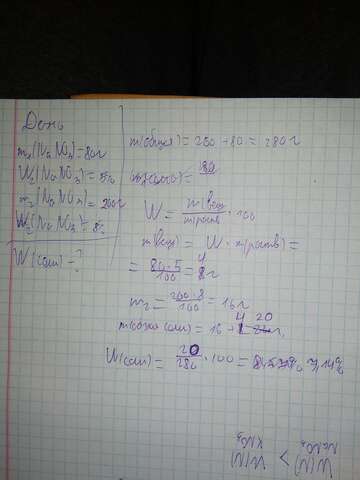 Дано
m₁(NaNO₃)=80г
W₁(NaNO₃)=5%
m₂(NaNO₃)=200г
W₂(NaNO₃)=8%
W(соли)-?
m(общая)=200+80=280г
W=m(вещ)/m(раств)·100
m(вещ)=W·m(раств)=
=80·5/100=4г
m₂=200·8/100=16г
m(общая соли)=16+4 20г
W(соли)=20/280·100= 7,14%
W(N) > W(N)
NaNO₃ KNO₃